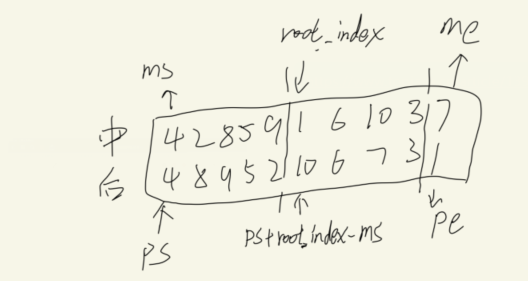 root_index
me
ms
中 4 2 8 5 9 1 6 10 3 7
后 4 8 9 5 2 10 6 7 3 1
ps
ps+root_index-ms
pe